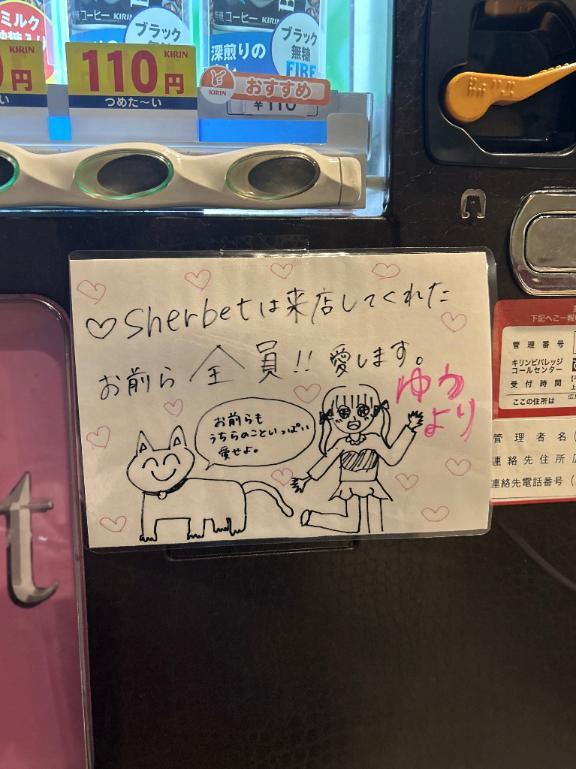 ミルク
KIRIN
KIRIN
ブラック
無糖
深煎りの
ブラック
無糖
FIRE
円
110円
つめた〜い
KIRIN
おすすめ
♡Sherbetは来店してくれた
お前ら全員!!愛します。
ゆか
より
お前らも
うちらのこといっぱい
愛せよ。
t
管理番号
キリンビバレッジ
コールセンター
受付時間
ここの住所は
管理者名
連絡先住所
連絡先電話番号